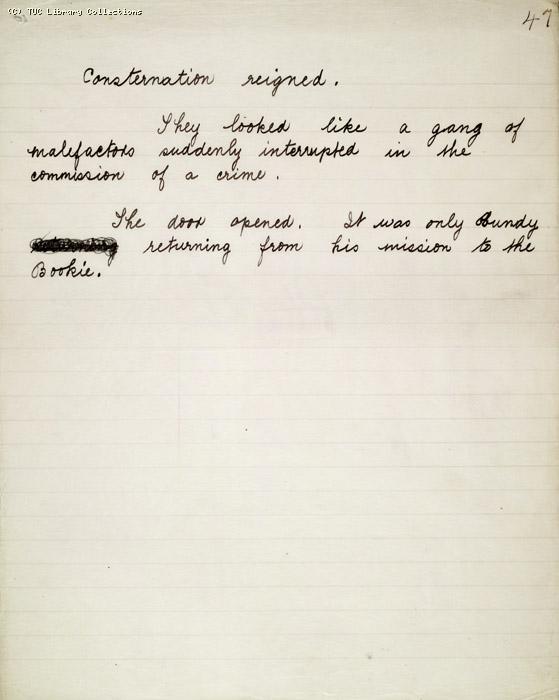 (C) TUC Library Collections
47
Consternation reigned.
They looked like a gang of
malefactors suddenly interrupted in the
commission of a crime.
The door opened. It was only Bundy
returning from his mission to the
Bookie.